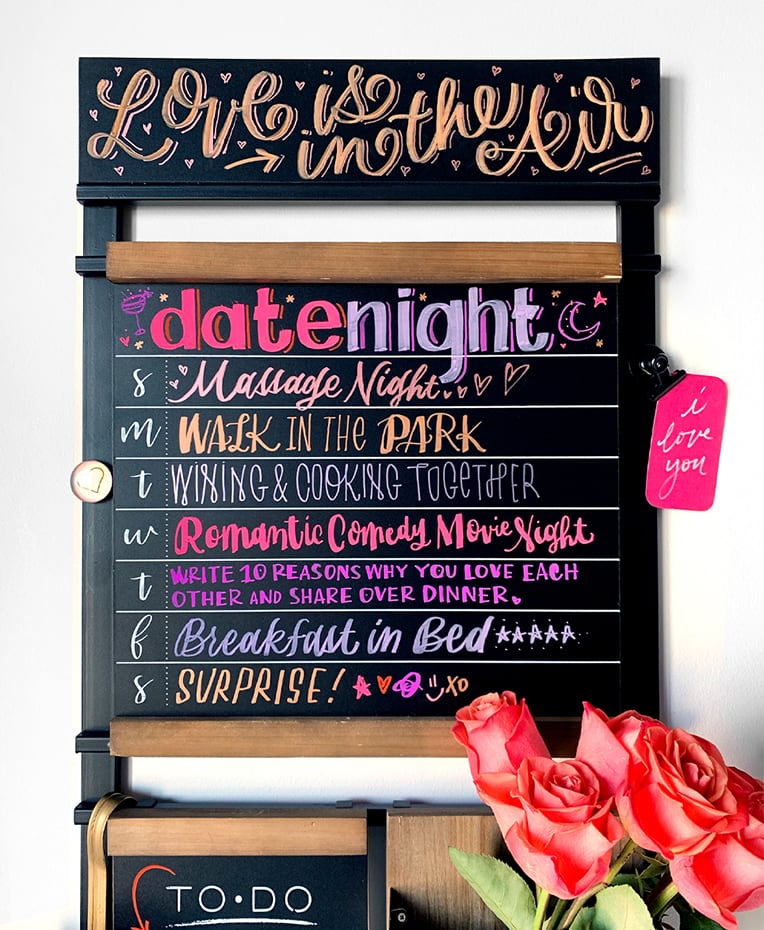 Love is in the Air
datenight
s Massage Night
m WALK IN THE PARK
t WINING & COOKING TOGETHER
w Romantic Comedy Movie Night
t WRITE 10 REASONS WHY YOU LOVE EACH
OTHER AND SHARE OVER DINNER.
f Breakfast in Bed
s SURPRISE! XO
i
love
you
TO•DO